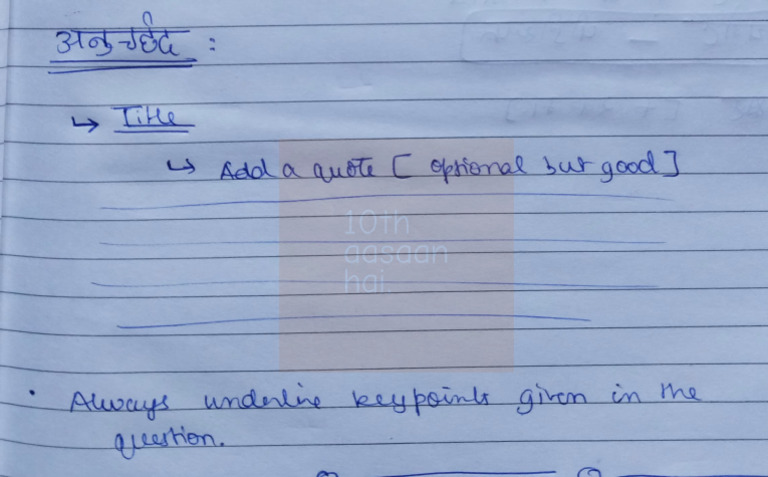 अनुच्छेद :
↳ Title
↳ Add a quote [ optional but good ]
10th
aasaan
hai
• Always underline keypoints given in the
question.